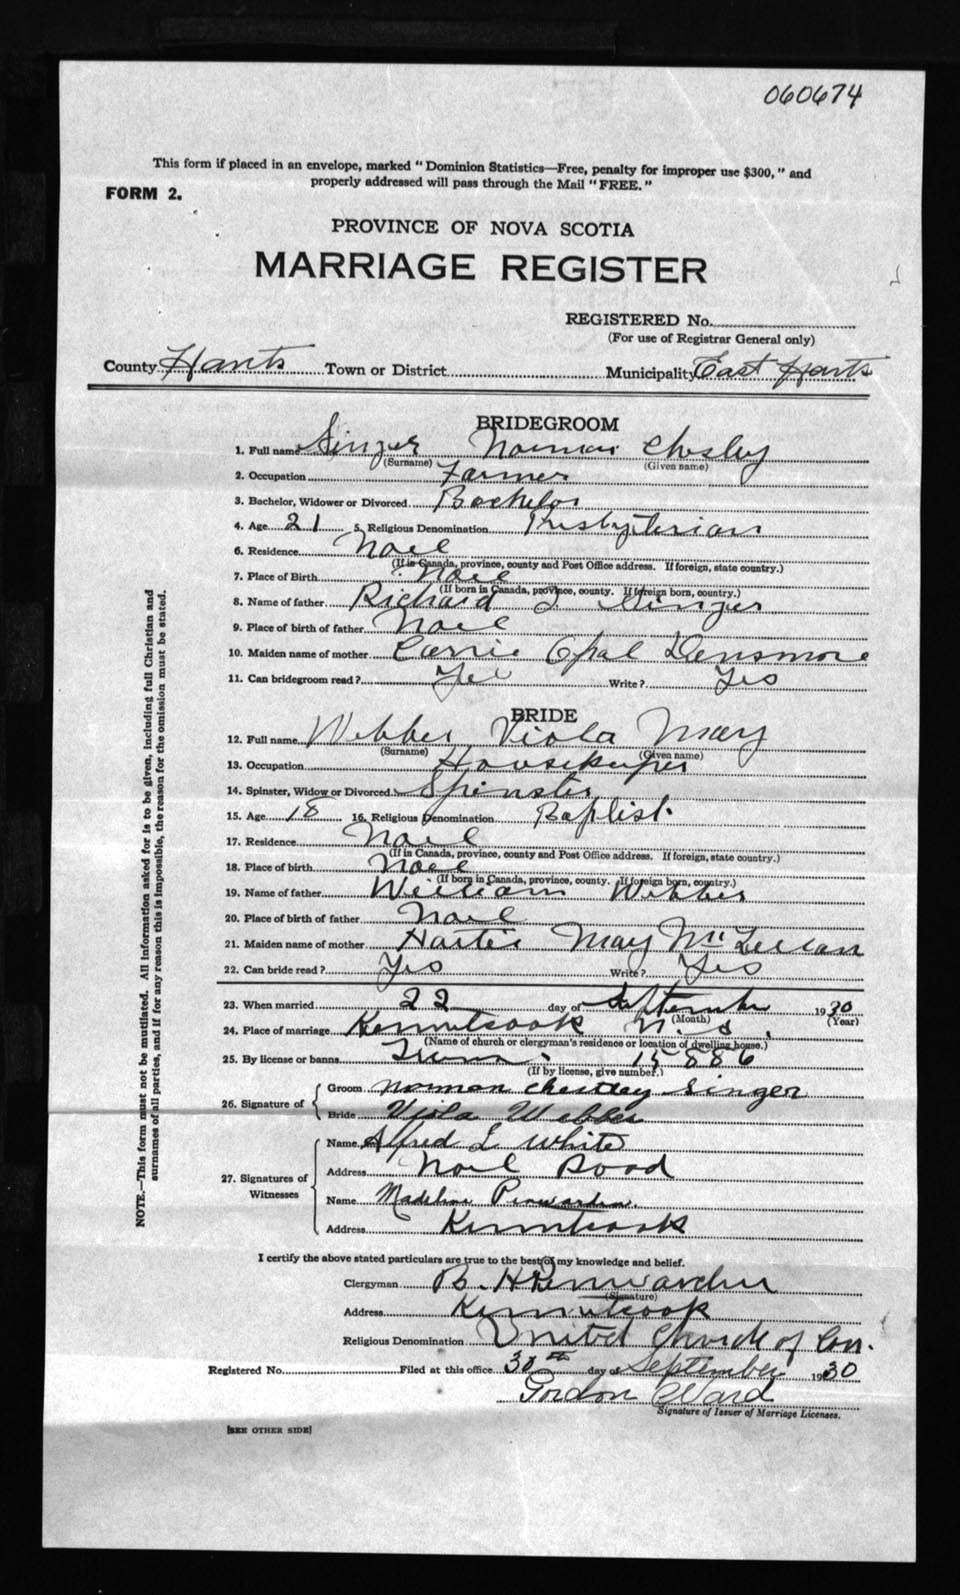 060674
This form if placed in an envelope, marked "Dominion Statistics—Free, penalty for improper use $300," and
properly addressed will pass through the Mail "FREE."
FORM 2.
PROVINCE OF NOVA SCOTIA
MARRIAGE REGISTER
REGISTERED No.
(For use of Registrar General only)
County Hants Town or District Municipality East Hants
BRIDEGROOM
1. Full name Singer Norman Chesley
(Surname) (Given name)
2. Occupation Farmer
3. Bachelor, Widower or Divorced Bachelor
4. Age 21 5. Religious Denomination Presbyterian
6. Residence Noel
(If in Canada, province, county and Post Office address. If foreign, state country.)
7. Place of Birth Noel
(If born in Canada, province, county. If foreign born, country.)
8. Name of father Richard Singer
9. Place of birth of father Noel
10. Maiden name of mother Carrie Opal Densmore
11. Can bridegroom read? Yes Write? Yes
BRIDE
12. Full name Webber Viola May
(Surname) (Given name)
13. Occupation Housekeeper
14. Spinster, Widow or Divorced Spinster
15. Age 18 16. Religious Denomination Baptist
17. Residence Noel
(If in Canada, province, county and Post Office address. If foreign, state country.)
18. Place of birth Noel
(If born in Canada, province, county. If foreign born, country.)
19. Name of father William Webber
20. Place of birth of father Noel
21. Maiden name of mother Hattie May McLellan
22. Can bride read? Yes Write? Yes
23. When married 22 day of September 1930
(Month) (Year)
24. Place of marriage Kennetcook N.S.
(Name of church or clergyman's residence or location of dwelling house.)
25. By license or banns 15886
(If by license, give number.)
26. Signature of Groom Norman Chestley Singer
Bride Viola Webber
27. Signatures of Witnesses Name Alfred L White
Address Noel Road
Name Madeline
Address Kennetcook
I certify the above stated particulars are true to the best of my knowledge and belief.
Clergyman B. H. Penwarden
(Signature)
Address Kennetcook
Religious Denomination United Church of Can.
Registered No. Filed at this office 30th day of September 1930
Gordon Ward
Signature of Issuer of Marriage Licenses.
[SEE OTHER SIDE]
NOTE.—This form must not be mutilated. All information asked for is to be given, including full Christian and
surnames of all parties, and if for any reason this is impossible, the reason for the omission must be stated.